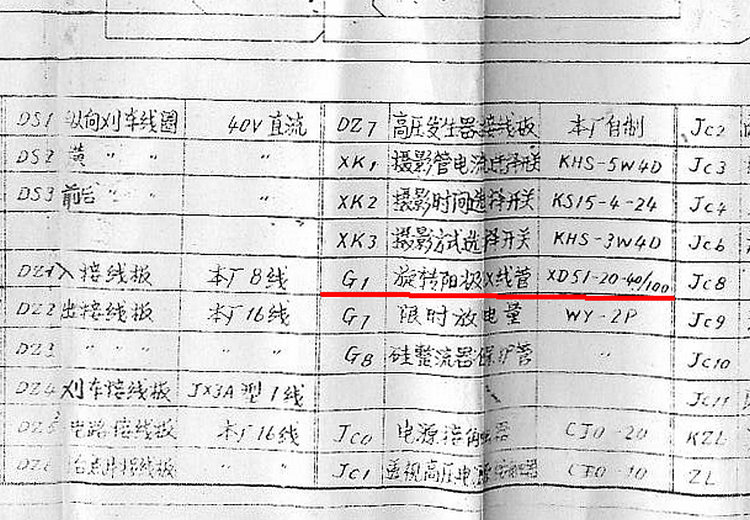 DS1 纵向刈车线圈 40V直流 DZ7 高压发生器接线板 本厂自制 Jc2
DS2 横 〃 〃 〃 XK1 摄影管电流选择开关 KHS-5W4D Jc3
DS3 前后 〃 〃 XK2 摄影时间选择开关 KS15-4-24 Jc4
XK3 摄影方式选择开关 KHS-3W4D Jc6
DZ1 入接线板 本厂8线 G1 旋转阳极X线管 XD51-20-40/100 Jc8
DZ2 出接线板 本厂16线 G7 限时放电量 WY-2P Jc9
DZ3 〃 〃 〃 〃 G8 硅整流器保护管 〃 Jc10
DZ4 刈车接线板 JX3A型1线 Jc11
DZ5 电路接线板 本厂16线 Jc0 电源接触器 CJ0-20 KZL
DZ6 接线板 〃 〃 Jc1 透视高压电源接触器 CJ0-10 ZL